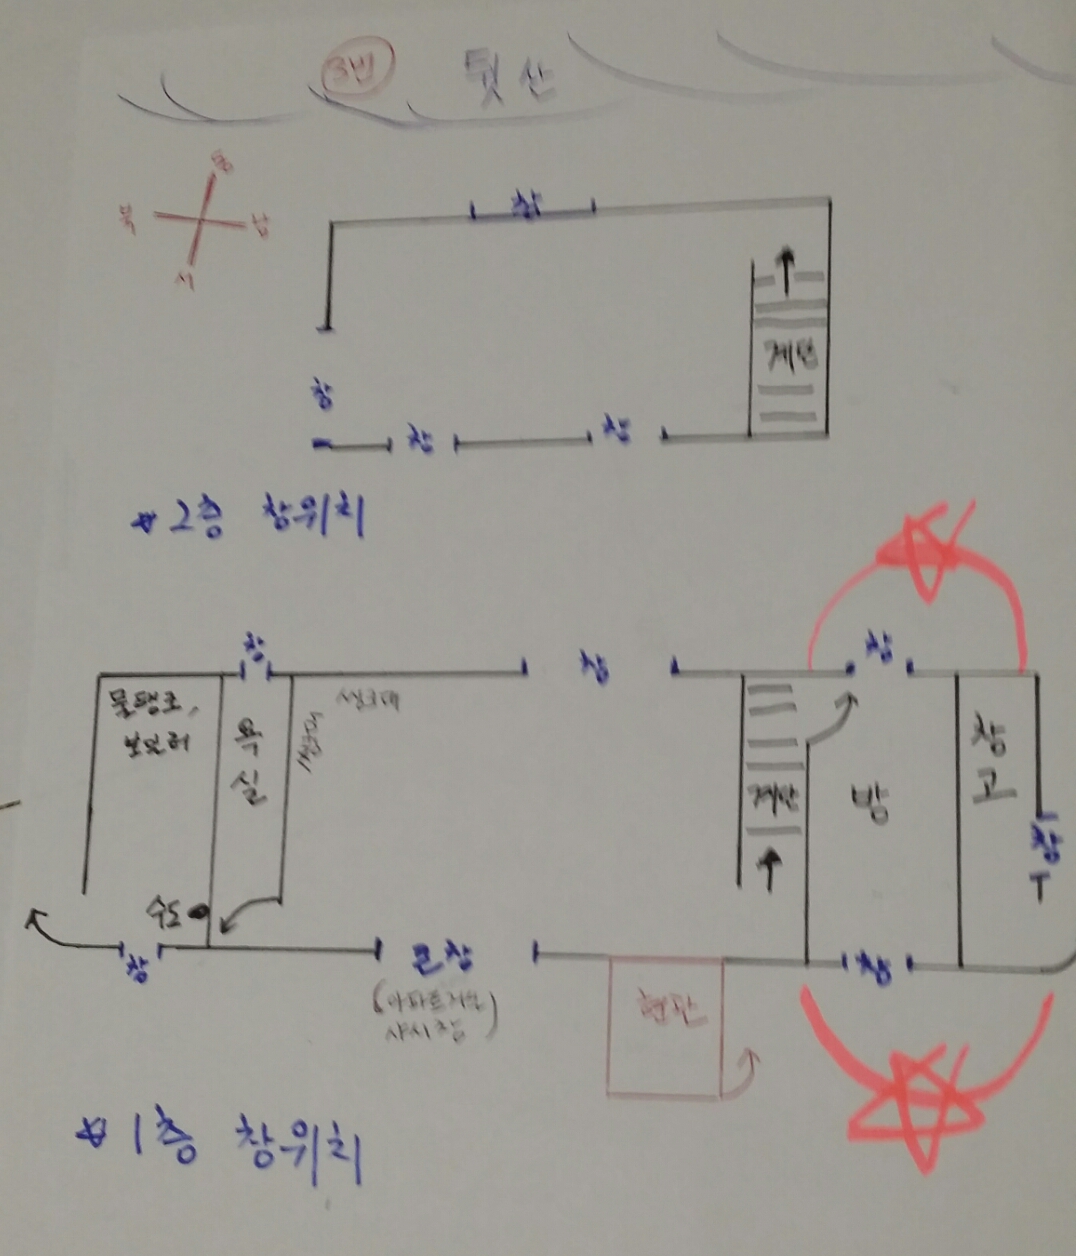 3번
뒷산
동
북
남
서
창
계단
창
창
창
* 2층 창위치
창
창
창
물탱크,
보일러
욕
실
싱크대
창
고
계단
방
창
수도
창
큰창
(아파트거실
샤시창)
창
현관
* 1층 창위치